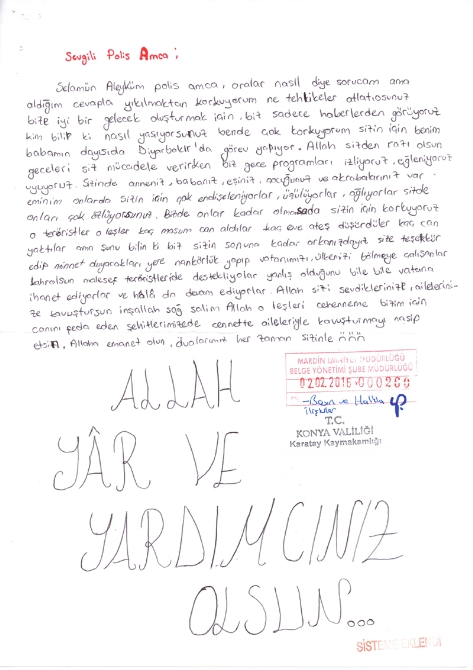 Sevgili Polis Amca ;
Selamün Aleyküm polis amca, oralar nasıl diye sorucam ama
aldığım cevapla yıkılmaktan korkuyorum ne tehlikeler atlatıosunuz
bize iyi bir gelecek oluşturmak için, biz sadece haberlerden görüyoruz
kim bilir ki nasıl yaşıyorsunuz bende çok korkuyorum sizin için benim
babamın dayısıda Diyarbakır'da görev yapıyor. Allah sizden razı olsun
geceleri siz mücadele verirken biz gece programları izliyoruz, eğleniyoruz
uyuyoruz. Sizinde anneniz, babanız, eşiniz, çocuğunuz ve akrabalarınız var
eminim onlarda sizin için çok endişeleniyorlar, üzülüyorlar, ağlıyorlar sizde
onları çok özlüyorsunuz. Bizde onlar kadar olmasada sizin için korkuyoruz
o teröristler o leşler kaç masum can aldılar kaç eve ateş düşürdüler kaç can
yaktılar ama şunu bilin ki biz sizin sonuna kadar arkanızdayız size teşekkür
edip minnet duyacakları yere nankörlük yapıp vatanımızı, ülkenizi bölmeye çalışanlar
kahrolsun malesef teröristleride destekliyorlar yanlış olduğunu bile bile vatana
ihanet ediyorlar ve hâlâ da devam ediyorlar. Allah sizi sevdiklerinize, ailelerini-
ze kavuştursun inşallah sağ salim Allah o leşleri cehenneme bizim için
canını feda eden şehitlerimizede cennette aileleriyle kavuşturmayı nasip
etsin, Allaha emanet olun, dualarımız her zaman sizinle
MARDİN EMNİYET MÜDÜRLÜĞÜ
BELGE YÖNETİMİ ŞUBE MÜDÜRLÜĞÜ
02.02.2016 000260
- Basın ve Halkla
İlişkiler
T.C.
KONYA VALİLİĞİ
Karatay Kaymakamlığı
ALLAH
YÂR VE
YARDIMCINIZ
OLSUN...
SİSTEME EKLENDİ